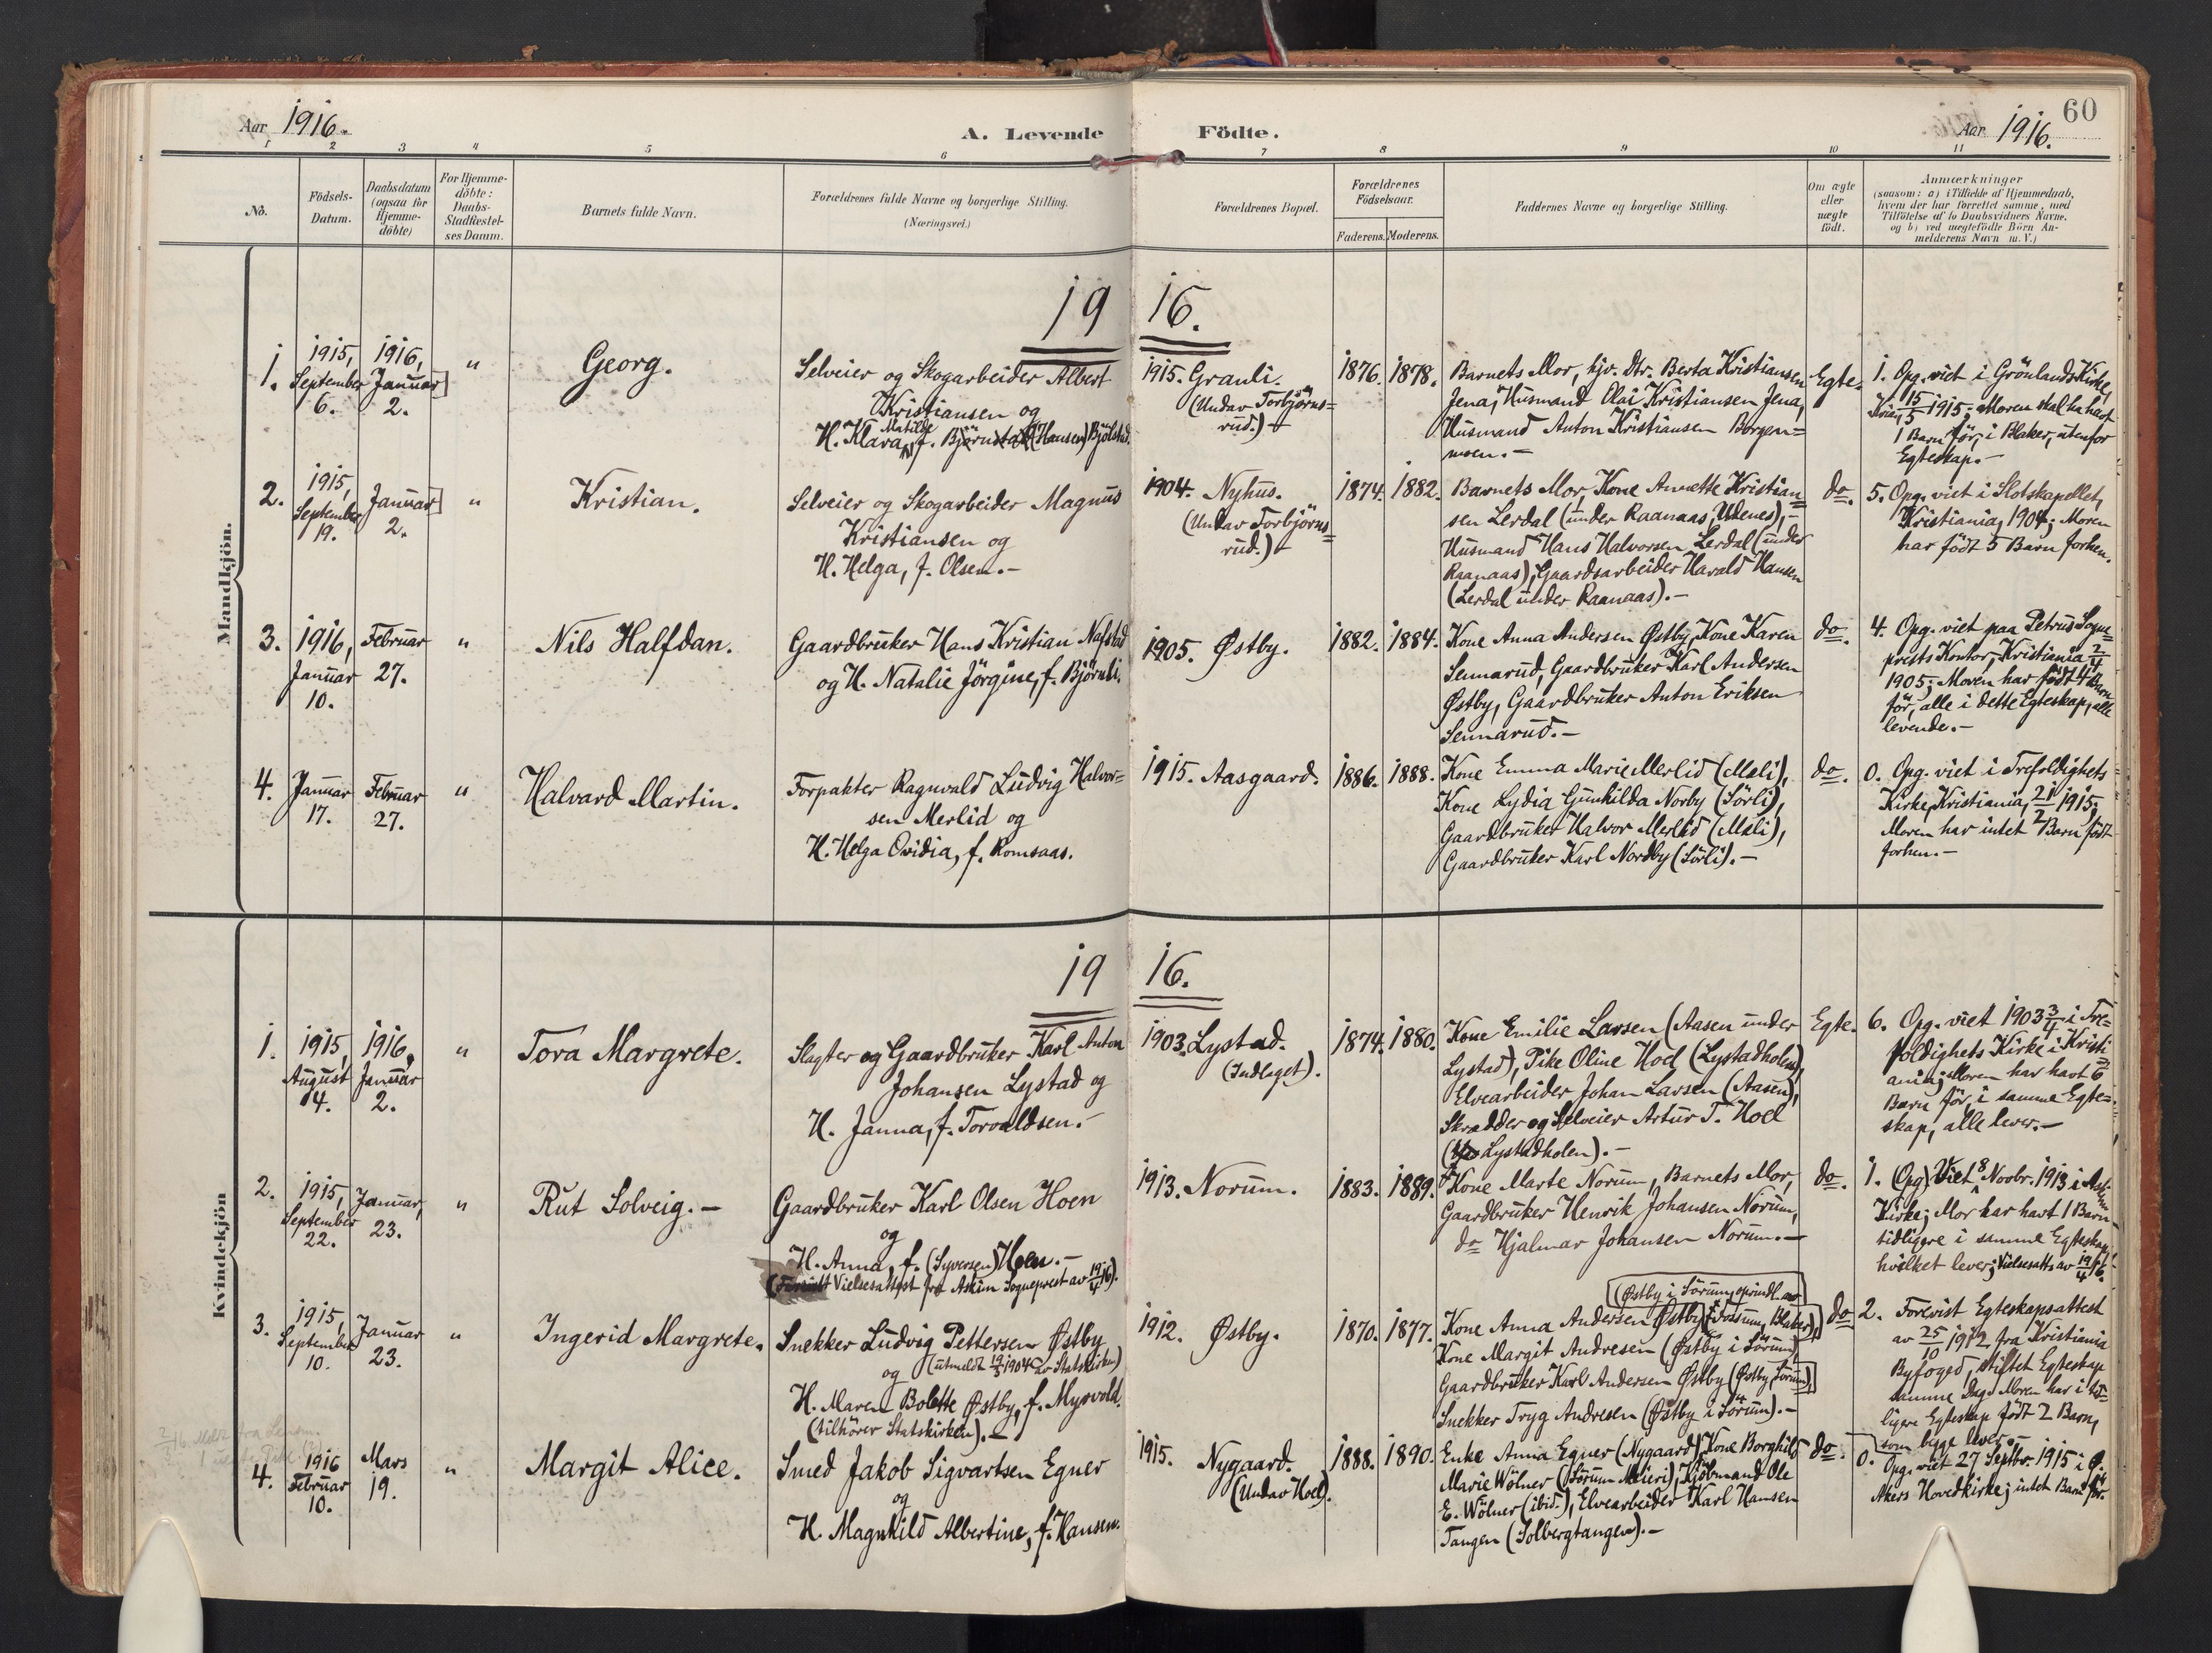 60
Aar 1916.
A. Levende Födte.
Aar 1916.
1 2 3 4 5 6 7 8 9 10 11
No.
Födsels-
Datum.
Daabsdatum
(ogsaa for
Hjemme-
döbte)
For Hjemme-
döbte:
Daabs-
Stadfæstel-
ses Datum.
Barnets fulde Navn.
Forældrenes fulde Navne og borgerlige Stilling.
(Næringsvei.)
Forældrenes Bopæl.
Forældrenes
Födselsaar.
Faderens. Moderens.
Faddernes Navne og borgerlige Stilling.
Om ægte
eller
uægte
födt.
Anmærkninger
(saasom: a) i Tilfælde af Hjemmedaab,
hvem der har forrettet samme, med
Tilföielse af to Daabsvidners Navne.
og b) ved uægtefödte Börn An-
melderens Navn m. V.)
Mandkjön.
19 16.
1.
1915,
September
6.
1916,
Januar
2.
"
Georg.
Selveier og Skogarbeider Albert
Kristiansen og
Matilde
H. Klara, f. Björnstad (Hansen) Bjölstad.
1915. Granli.
(Undav Torbjörns=
rud.) –
1876. 1878.
Barnets Mor, hjv. Dtr. Berta Kristiansen
Jena, Husmand Olai Kristiansen Jena,
Husmand Anton Kristiansen Borgen=
moen. –
Egte.
1. Opg. viet i Grönlands Kirke,
Kria, 15/5 1915; Moren skal ha havt
1 Barn för, i Blaker, utenfor
Egteskap. –
2.
1915,
September
19.
Januar
2.
"
Kristian.
Selveier og Skogarbeider Magnus
Kristiansen og
H. Helga, f. Olsen. –
1904. Nyhus.
(Undav Torbjörns=
rud.) –
1874. 1882.
Barnets Mor, Kone Anette Kristian=
sen Lerdal (under Raanaas, Udenes), –
Husmand Hans Halvorsen Lerdal (under
Raanaas), Gaardsarbeider Harald Hansen
(Lerdal under Raanaas). –
do.
5. Opg. viet i Slotskapellet,
Kristiania, 1904; Moren
har födt 5 Barn forhen.
3.
1916,
Januar
10.
Februar
27.
"
Nils Halfdan.
Gaardbruker Hans Kristian Nafstad
og H. Natalie Jörgine, f. Björnli.
1905. Østby.
1882. 1884.
Kone Anna Andersen Østby, Kone Karen
Sennarud, Gaardbruker Karl Andersen
Østby, Gaardbruker Anton Eriksen
Sennarud. –
do.
4. Opg. viet paa Petrus Sogne=
prests Kontor, Kristiania 2/4
1905; Moren har födt 4 Barn
för, alle i dette Egteskap, alle
levende. –
4.
Januar
17.
Februar
27.
"
Halvard Martin.
Forpakter Ragnvald Ludvig Halvor=
sen Merlid og
H. Helga Ovidia, f. Romsaas.
1915. Aasgaard.
1886. 1888.
Kone Emma Marie Merlid (Mæli),
Kone Lydia Gunhilda Norby (Sörli),
Gaardbruker Halvor Merlid (Mæli),
Gaardbruker Karl Nordby (Sörli). –
do.
0. Opg. viet i Trefoldighets
Kirke, Kristiania, 21/2 1915;
Moren har intet Barn födt
forhen. –
Kvindekjön
19 16.
1.
1915,
August
14.
1916,
Januar
2.
"
Tora Margrete.
Slagter og Gaardbruker Karl Anton
Johansen Lystad og
H. Janna, f. Torvaldsen. –
1903. Lystad.
(Indlaget).
1874. 1880.
Kone Emilie Larsen (Aasen under
Lystad), Pike Oline Hoel (Lystadholen),
Elvearbeider Johan Larsen (Aasen),
Skrædder og Selveier Artur T. Hoel
(Lystadholen). –
Egte.
6. Opg. viet 1903 3/4 i Tre=
foldighets Kirke i Kristi=
ania; Moren har havt 6
Barn för, i samme Egte=
skap, alle lever. –
2.
1915,
September
22.
Januar,
23.
"
Rut Solveig. –
Gaardbruker Karl Olsen Hoen
og
H. Anna, f. (Syversen) Hoen. –
(Forevist Vielsesattest fra Askim Sogneprest av 19/4 16).
1913. Norum.
1883. 1889.
Kone Marte Norum, Barnets Mor,
Gaardbruker Henrik Johansen Norum,
do Hjalmar Johansen Norum. –
do.
1. (Opg) Viet 8 Novbr. 1913 i Askim
Kirke; Mor har havt 1 Barn
tidligere i samme Egteskap,
hvilket lever; Vielsesatts av 19/4 16.
3.
1915,
September
10.
Januar
23.
"
Ingerid Margrete.
Snekker Ludvig Pettersen Østby
og (utmeldt 19/3 1904 av Statskirken)
H. Maren Bolette Østby, f. Myrvold.
(tilhörer Statskirken). –
1912. Østby.
1870. 1877.
(Østby i Sörum, oprindl. av
Kone Anna Andersen Østby (Fossum, Blaker),
Kone Margit Andresen (Østby i Sörum)
Gaardbruker Karl Andersen Østby (Østby, Sörum),
Snekker Tryg Andresen (Østby i Sörum). –
do
2. Forevist Egteskapsattest
av 25/10 1912 fra Kristiania
Byfoged, stiftet Egteskap
samme Dag. Moren har i tid=
ligere Egteskap födt 2 Barn,
som begge lever. –
4.
1916
Februar
10.
Mars
19.
"
Margit Alice.
Smed Jakob Sigvartsen Egner
og
H. Magnhild Albertine, f. Hansen.
1915. Nygaard.
(Undav Hoel).
1888. 1890.
Enke Anna Egner (Nygaard), Kone Borghild
Marie Wölner (Sörum Meieri), Kjöbmand Ole
E. Wölner (ibid.), Elvearbeider Karl Hansen
Tangen (Solbergtangen). –
do.
0. Opg. viet 27 Septbr. 1915 i Ø.
Akers Hovedkirke; intet Barn för.